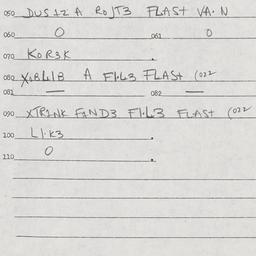 050 DUS12 A ROJT3 FLAST VA·N
060 O 061 O
070 KOR3K
080 XOBLIB A F1·L3 FLAST (022
081 — 082 —
090 XTRINK FAND3 F1·L3 FLAST (022
100 L1·K3
O
110